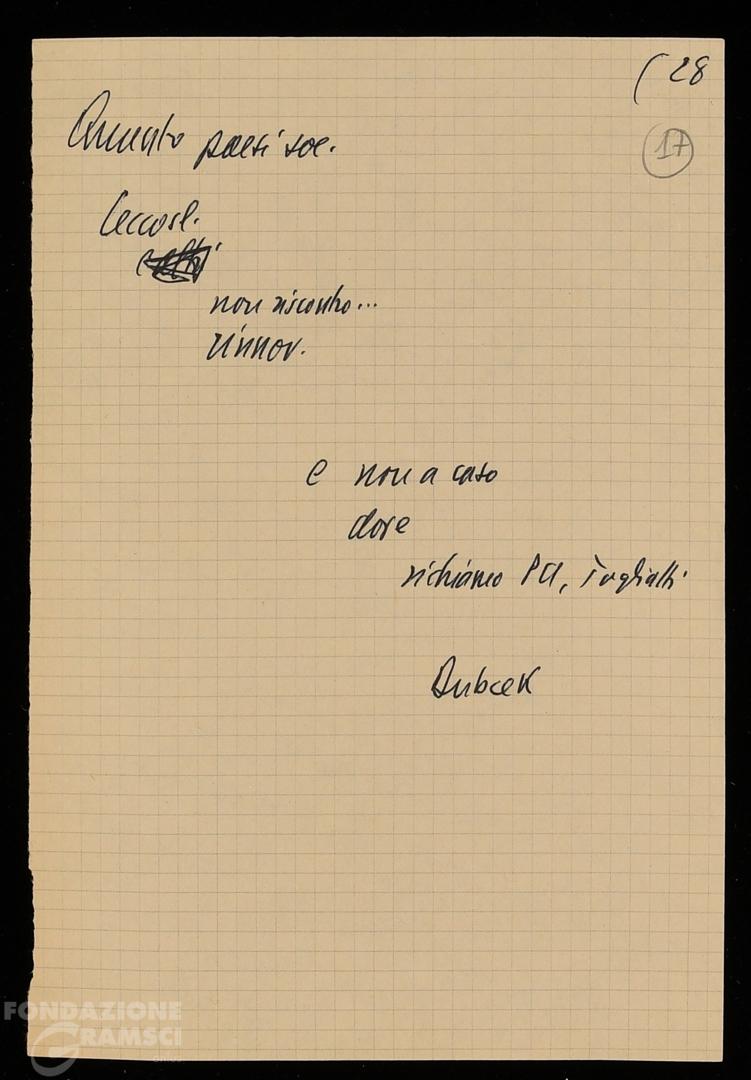 ( 28
17
Quanto paesi soc.
Cecosl.
non riscontro...
rinnov.
e non a caso
dove
richiamo PCI, Togliatti
Dubcek
FONDAZIONE
GRAMSCI